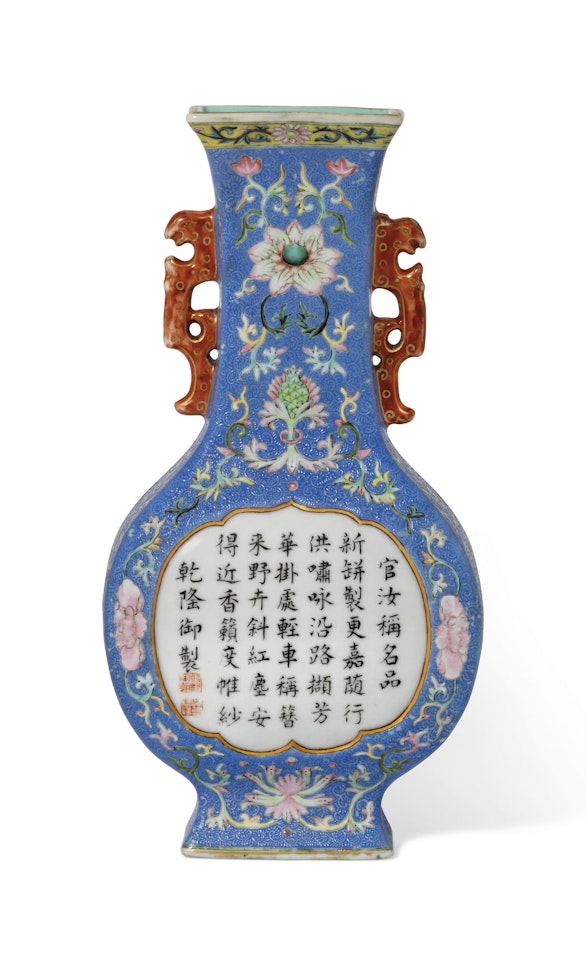 官汝稱名品
新缾製更嘉随行
洪嘯咏沿路擷芳
華掛處輕車稱簪
来野卉斜紅塵安
得近香籟度帷紗
乾隆御製